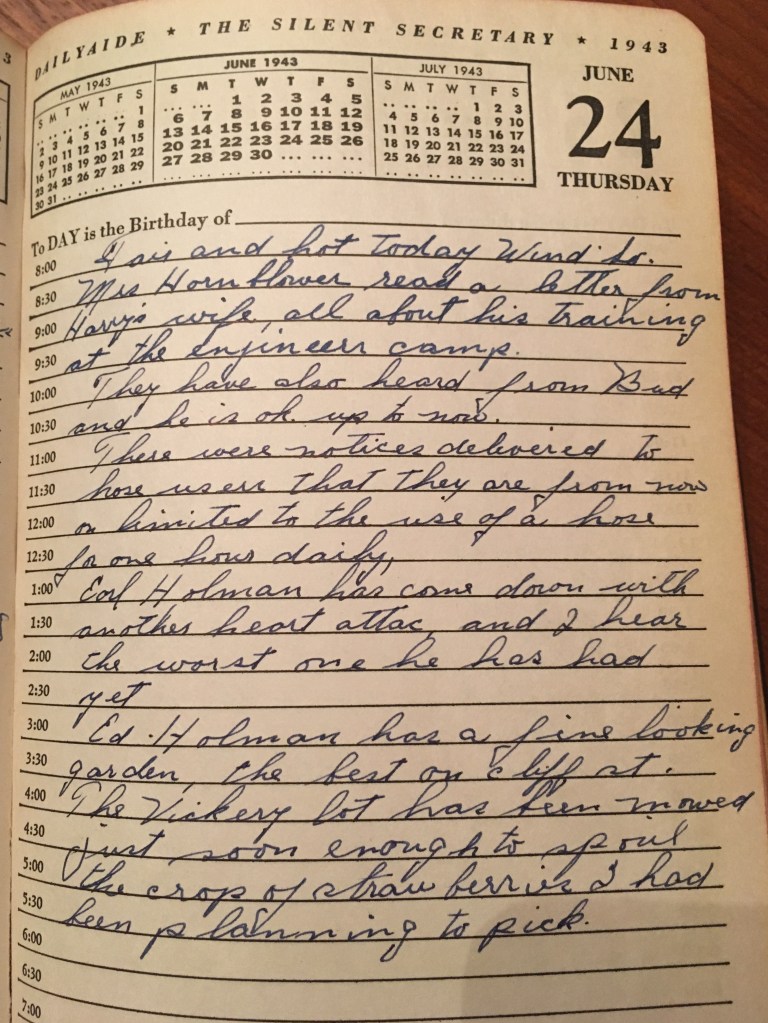 3
DAILYAIDE ★ THE SILENT SECRETARY ★ 1943
MAY 1943
S M T W T F S
. . . . . . . . . . . . 1
2 3 4 5 6 7 8
9 10 11 12 13 14 15
16 17 18 19 20 21 22
23 24 25 26 27 28 29
30 31 . . . . . . . . . .
JUNE 1943
S M T W T F S
... ... 1 2 3 4 5
6 7 8 9 10 11 12
13 14 15 16 17 18 19
20 21 22 23 24 25 26
27 28 29 30 ... ... ...
JULY 1943
S M T W T F S
. . . . . . . . 1 2 3
4 5 6 7 8 9 10
11 12 13 14 15 16 17
18 19 20 21 22 23 24
25 26 27 28 29 30 31
JUNE
24
THURSDAY
To DAY is the Birthday of
8:00 Fair and hot today Wind So.
8:30 Mrs Hornblower read a letter from
9:00 Harry's wife, all about his training
9:30 at the engineer camp.
10:00 They have also heard from Bud
10:30 and he is ok up to now.
11:00 There were notices delivered to
11:30 hose users that they are from now
12:00 on limited to the use of a hose
12:30 for one hour daily,
1:00 Earl Holman has come down with
1:30 another heart attac, and I hear
2:00 the worst one he has had
2:30 yet
3:00 Ed. Holman has a fine looking
3:30 garden, the best on cliff st.
4:00 The Vickery lot has been mowed
4:30 just soon enough to spoil
5:00 the crop of straw berries I had
5:30 been planning to pick.
6:00
6:30
7:00